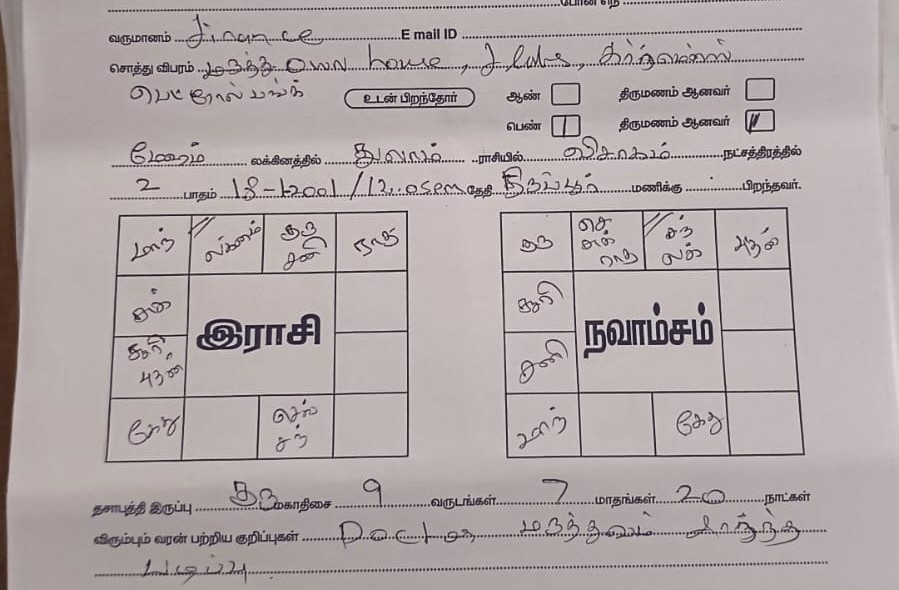 போன் நெ
வருமானம் Finance E mail ID
சொத்து விபரம் own house,
பெட்ரோல் பங்க் உடன் பிறந்தோர் ஆண் திருமணம் ஆனவர்
பெண் 1 திருமணம் ஆனவர் 1
மேஷம் லக்கினத்தில் துலாம் ராசியில் விசாகம் நட்சத்திரத்தில்
2 பாதம் 18-1-2001/12.05pm தேதி திருப்பூர் மணிக்கு பிறந்தவர்.
மாந் லக்னம் குரு சனி ராகு
சுக்
சூரி, புதன்
கேது செவ் சந்
இராசி
குரு செ சுக் ராகு சந் லக் புதன்
சூரி
சனி
மாந் கேது
நவாம்சம்
தசாபுத்தி இருப்பு குரு மகாதிசை 9 வருடங்கள் 7 மாதங்கள் 20 நாட்கள்
விரும்பும் வரன் பற்றிய குறிப்புகள் Doctor மருத்துவம் சார்ந்த
படிப்பு